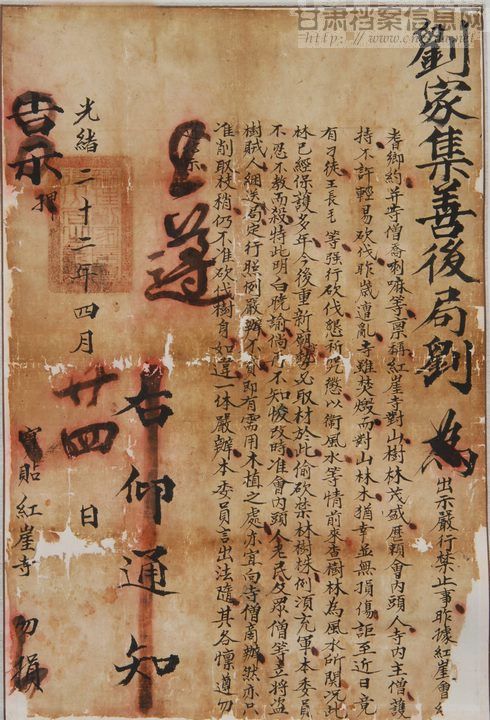 甘肃档案信息网
劉家集善後局劉 為
出示嚴行禁止事昨據紅崖會
耆鄉約并寺僧喬喇嘛等禀稱紅崖寺對山樹林茂盛歷賴會內頭人寺內主僧護
持不許輕易砍伐昨歲遭亂寺雖焚燬而對山林木猶幸並無損傷詎至近日竟
有刁徒王長毛等強行砍伐懇祈究懲以衛風水等情前來查樹林為風水所關況此
林已經保護多年今後重新廟貌必取材於此偷砍禁林樹株例須充軍本委員
不忍不教而殺特此明白曉諭倘再不知悛改時准會內頭人老民及眾僧等立將盜
樹賊人綑送局定行照例嚴辦不貸即有需用木植之處亦宜向寺僧商辦然亦只
准削取枝梢仍不准砍伐樹身如違一体嚴辦本委員言出法隨其各懍遵勿
示
遵
右仰通知
光緒二十二年四月廿四日
告示 押
實貼紅崖寺 勿損